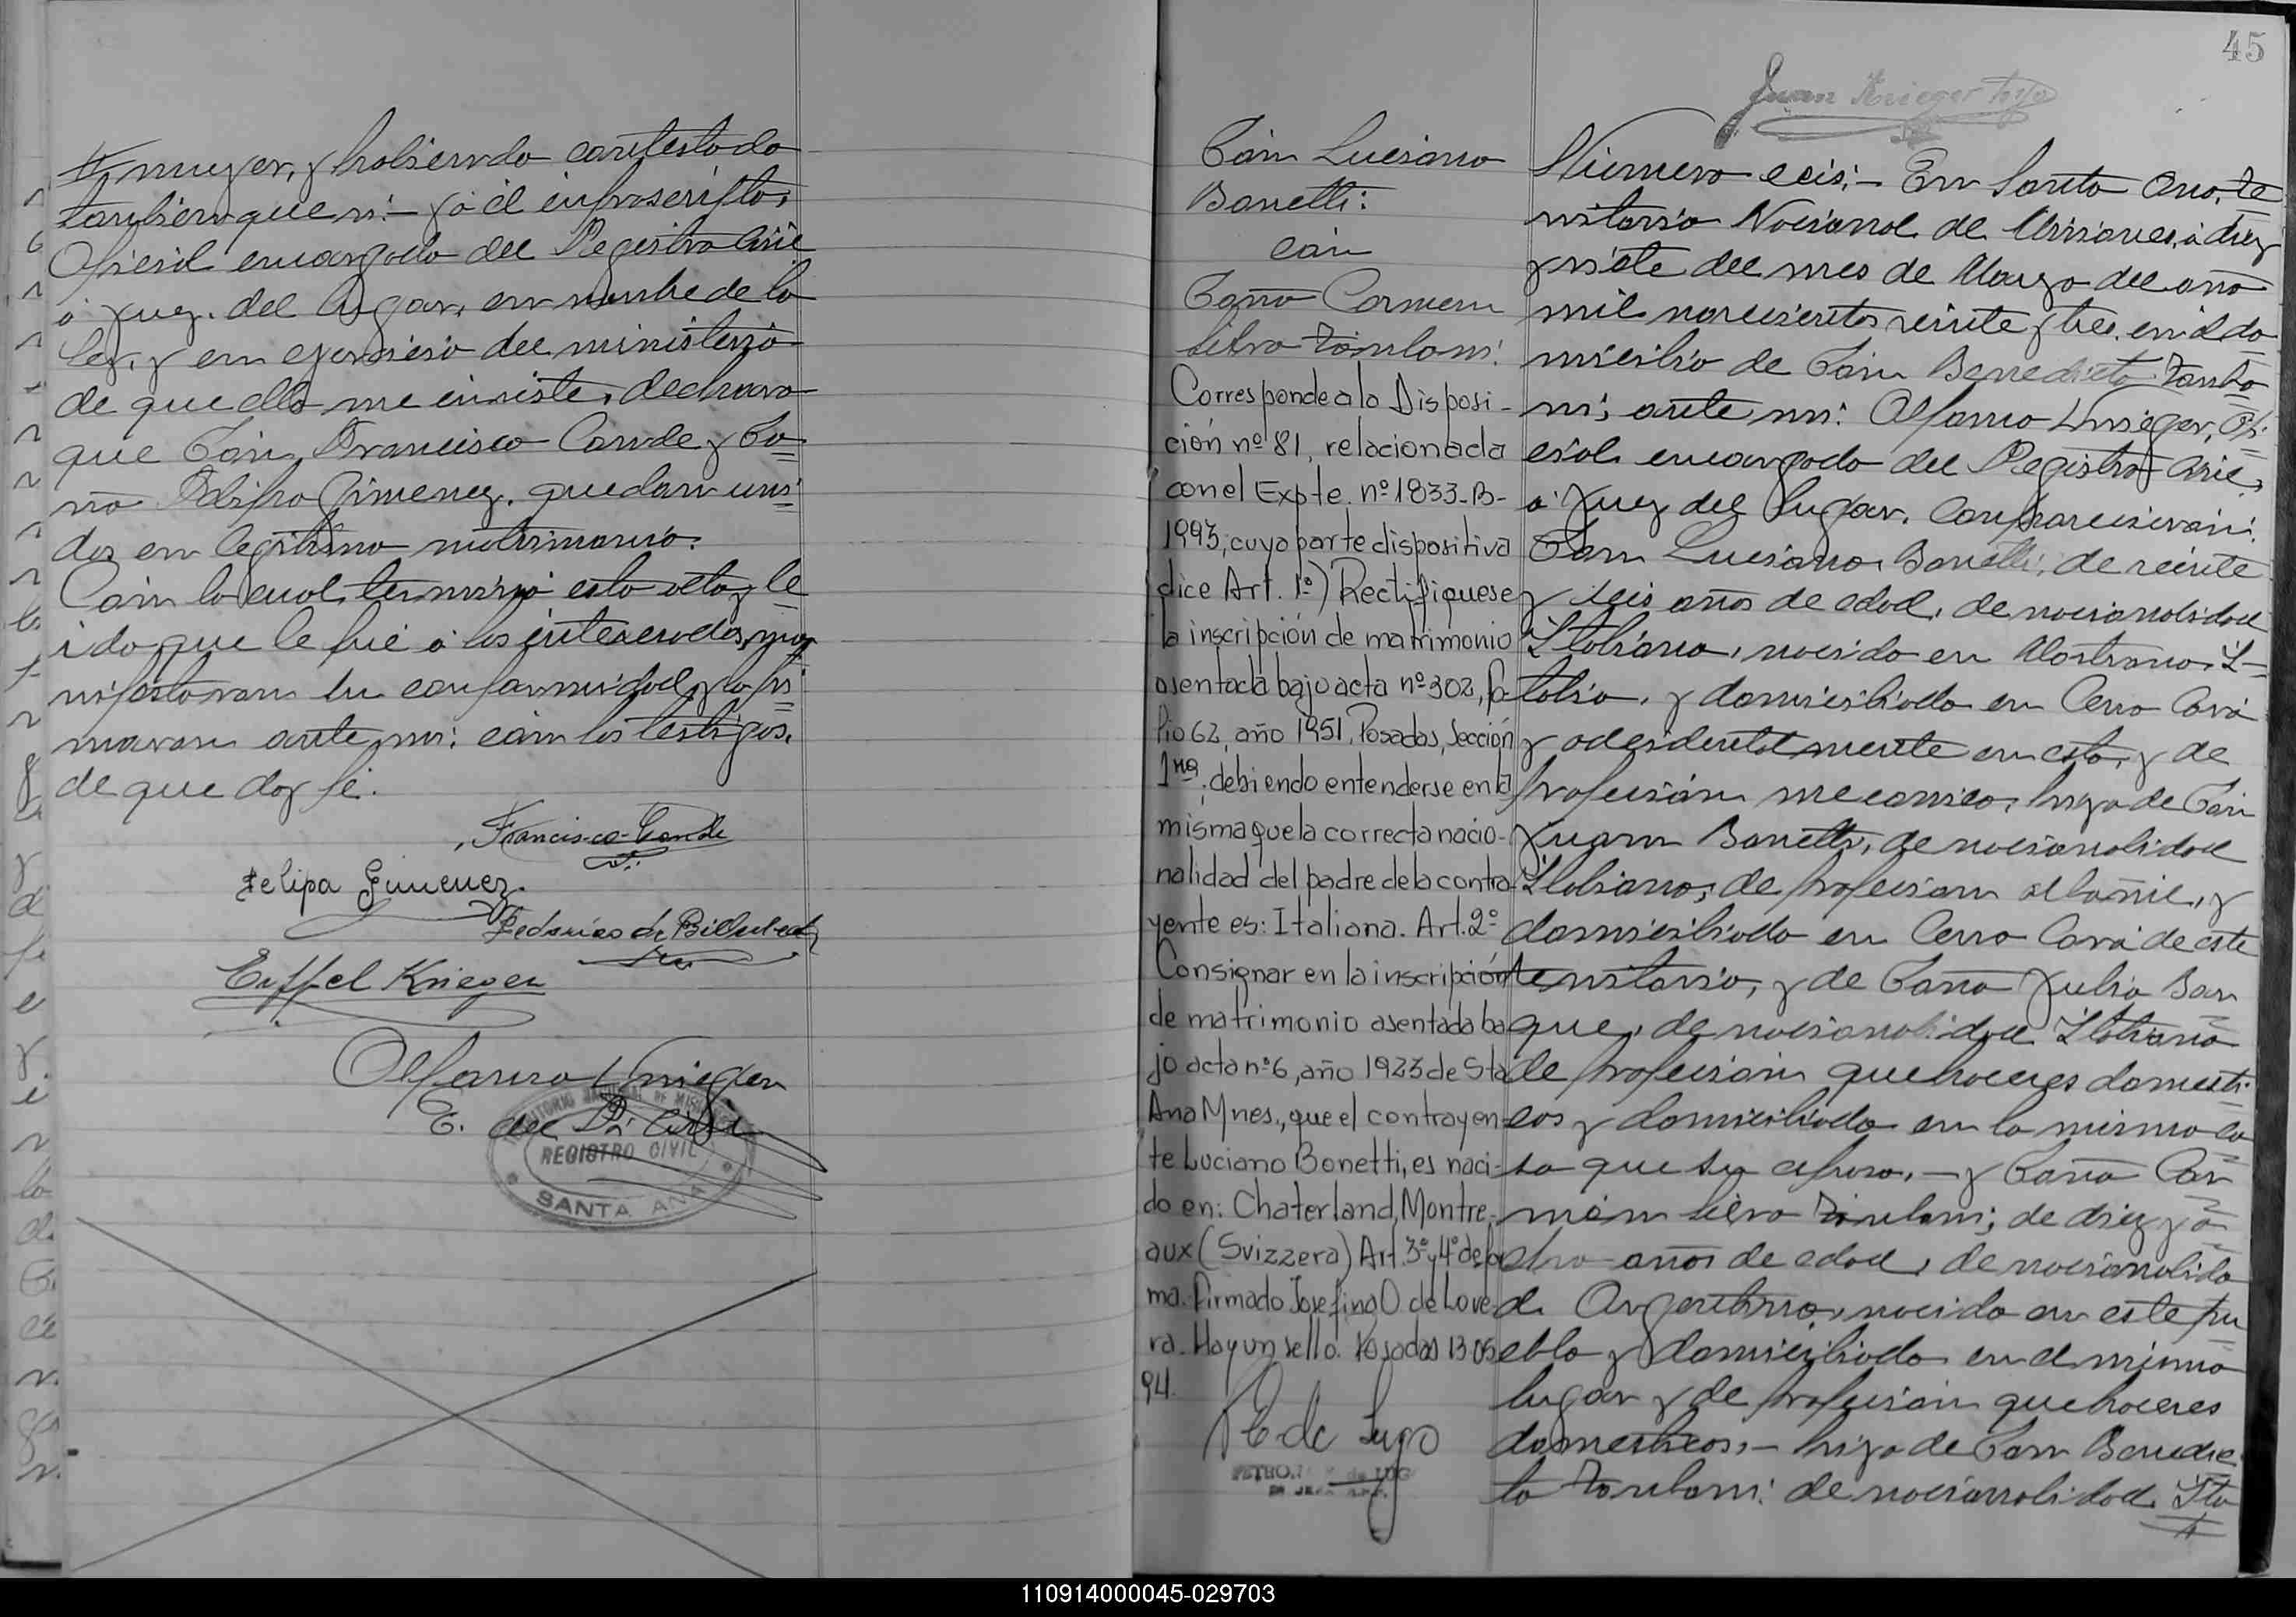 muger, y habiendo contestado
tambien que si:— yo el infrascripto,
Oficial encargado del Registro Civil
ó Juez del lugar, en nombre de la
ley, y en egercicio del ministerio
de que ella me inviste, declaro
que Don Francisco Conde y Do-
ña Felipa Gimenez, quedan uni-
dos en legitimo matrimonio.
Con lo cual, terminó esta acta, le
ida que le fué á los interesados, ma-
nifestaron su conformidad, y la fir
maron ante mi: con los testigos,
de que doy fé.
Francisco Conde
Felipa Gimenez.
Federico de Billerbeck
Eiffel Krieger
Olfanro Krieger
E. del R. Civil
TERRITORIO NACIONAL DE MISIONES
REGISTRO CIVIL
SANTA ANA
45
Juan Krieger hijo
Don Luciano
Bonetti:
con
Doña Carmen
Silva Zamboni:
Corresponde a la Disposi-
ción nº 81, relacionada
con el Expte. nº 1833-B-
1993, cuya parte dispositiva
dice Art. 1º) Rectifiquese
la inscripción de matrimonio
asentada bajo acta nº 302, fo-
lio 62, año 1951, Posadas, Sección
1ra, debiendo entenderse en la
misma que la correcta nacio-
nalidad del padre de la contra-
yente es: Italiana. Art. 2º
Consignar en la inscripción
de matrimonio asentada ba
jo acta nº 6, año 1923 de Sta
Ana Mnes., que el contrayen-
te Luciano Bonetti, es naci-
do en: Chaterland, Montre-
aux (Svizzera) Art. 3º y 4º de for
ma. Firmado Josefina O de Love-
ra. Hay un sello. Posadas 13 05
94.
P de Lugo
PETRONA de LUGO
Numero seis:— En Santa Ana, te
rritorio Nacional de Misiones, á diez
y siete del mes de Marzo del año
mil novecientos veinte y tres, en el do
micilio de Don Benedicto Zambo
ni; ante mi: Olfanro Krieger, Ofi-
cial encargado del Registro Civil,
ó Juez del lugar, Comparecieron:
Don Luciano Bonetti, de veinte
y seis años de edad, de nacionalidad
Italiano, nacido en Italia, y domiciliado en Cerro Corá
y accidentalmente en esta, y de
profesión mecanico, hijo de Don
Juan Bonetti, de nacionalidad
Italiano, de profesion albañil, y
domiciliado en Cerro Corá de este
territorio, y de Doña Julia
que, de nacionalidad Italiana
de profesión quehaceres domesti-
cos y domiciliada en la misma ca
sa que su esposo,— y Doña Car
men Silva Zamboni; de diez y o
cho años de edad, de nacionalida
d. Argentina, nacida en este pu
eblo y domiciliada en el mismo
lugar y de profesión quehaceres
domesticos,— hija de Don Benedic
to Zamboni: de nacionalidad Ita
110914000045-029703